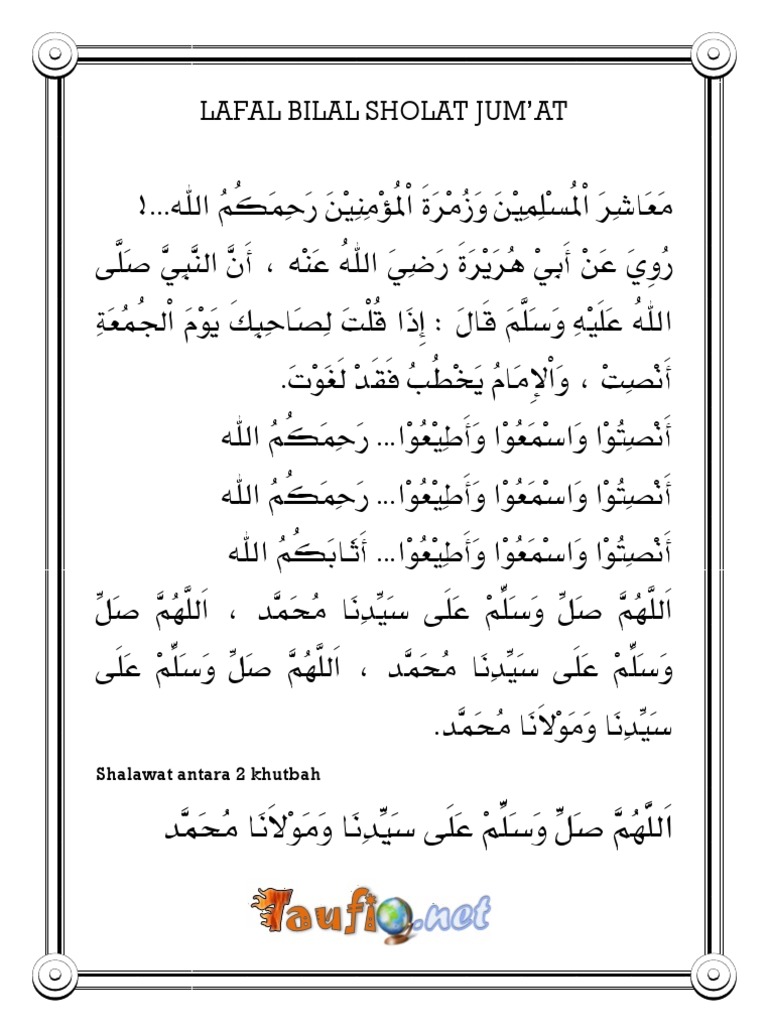 LAFAL BILAL SHOLAT JUM'AT
مَعَاشِرَ اْلمُسْلِمِيْنَ وَزُمْرَةَ اْلمُؤْمِنِيْنَ رَحِمَكُمُ الله...!
رُوِيَ عَنْ أَبِيْ هُرَيْرَةَ رَضِيَ اللهُ عَنْه ، أَنَّ النَّبِيَّ صَلَّى
اللهُ عَلَيْهِ وَسَلَّمَ قَالَ : إِذَا قُلْتَ لِصَاحِبِكَ يَوْمَ اْلجُمُعَةِ
أَنْصِتْ ، وَاْلإِمَامُ يَخْطُبُ فَقَدْ لَغَوْتَ.
أَنْصِتُوْا وَاسْمَعُوْا وَأَطِيْعُوْا... رَحِمَكُمُ الله
أَنْصِتُوْا وَاسْمَعُوْا وَأَطِيْعُوْا... رَحِمَكُمُ الله
أَنْصِتُوْا وَاسْمَعُوْا وَأَطِيْعُوْا... أَثَابَكُمُ الله
اَللَّهُمَّ صَلِّ وَسَلِّمْ عَلَى سَيِّدِنَا مُحَمَّد ، اَللَّهُمَّ صَلِّ
وَسَلِّمْ عَلَى سَيِّدِنَا مُحَمَّد ، اَللَّهُمَّ صَلِّ وَسَلِّمْ عَلَى
سَيِّدِنَا وَمَوْلاَنَا مُحَمَّد.
Shalawat antara 2 khutbah
اَللَّهُمَّ صَلِّ وَسَلِّمْ عَلَى سَيِّدِنَا وَمَوْلاَنَا مُحَمَّد
Taufiq.net